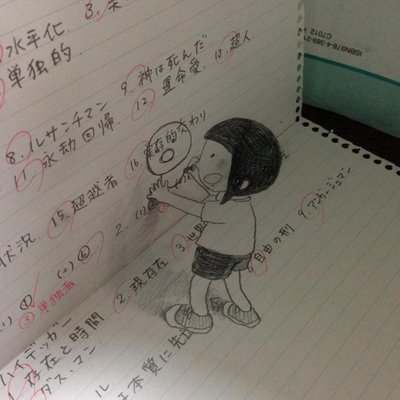 ISBN978-4-389-21
C7012
3.
水平化
単独的
8. ルサンチマン
9. 神は死んだ
11. 永劫回帰
12. 運命愛,
13. 超人
15. 超越者
16. 存的交わり
状況
2. (1)
③ 単独者
2. 現存在
3. 世界
自由の刑
9. アンガージュマン
ハイデッガー
存在と時間
ダス・マン
ル
は本質に先立